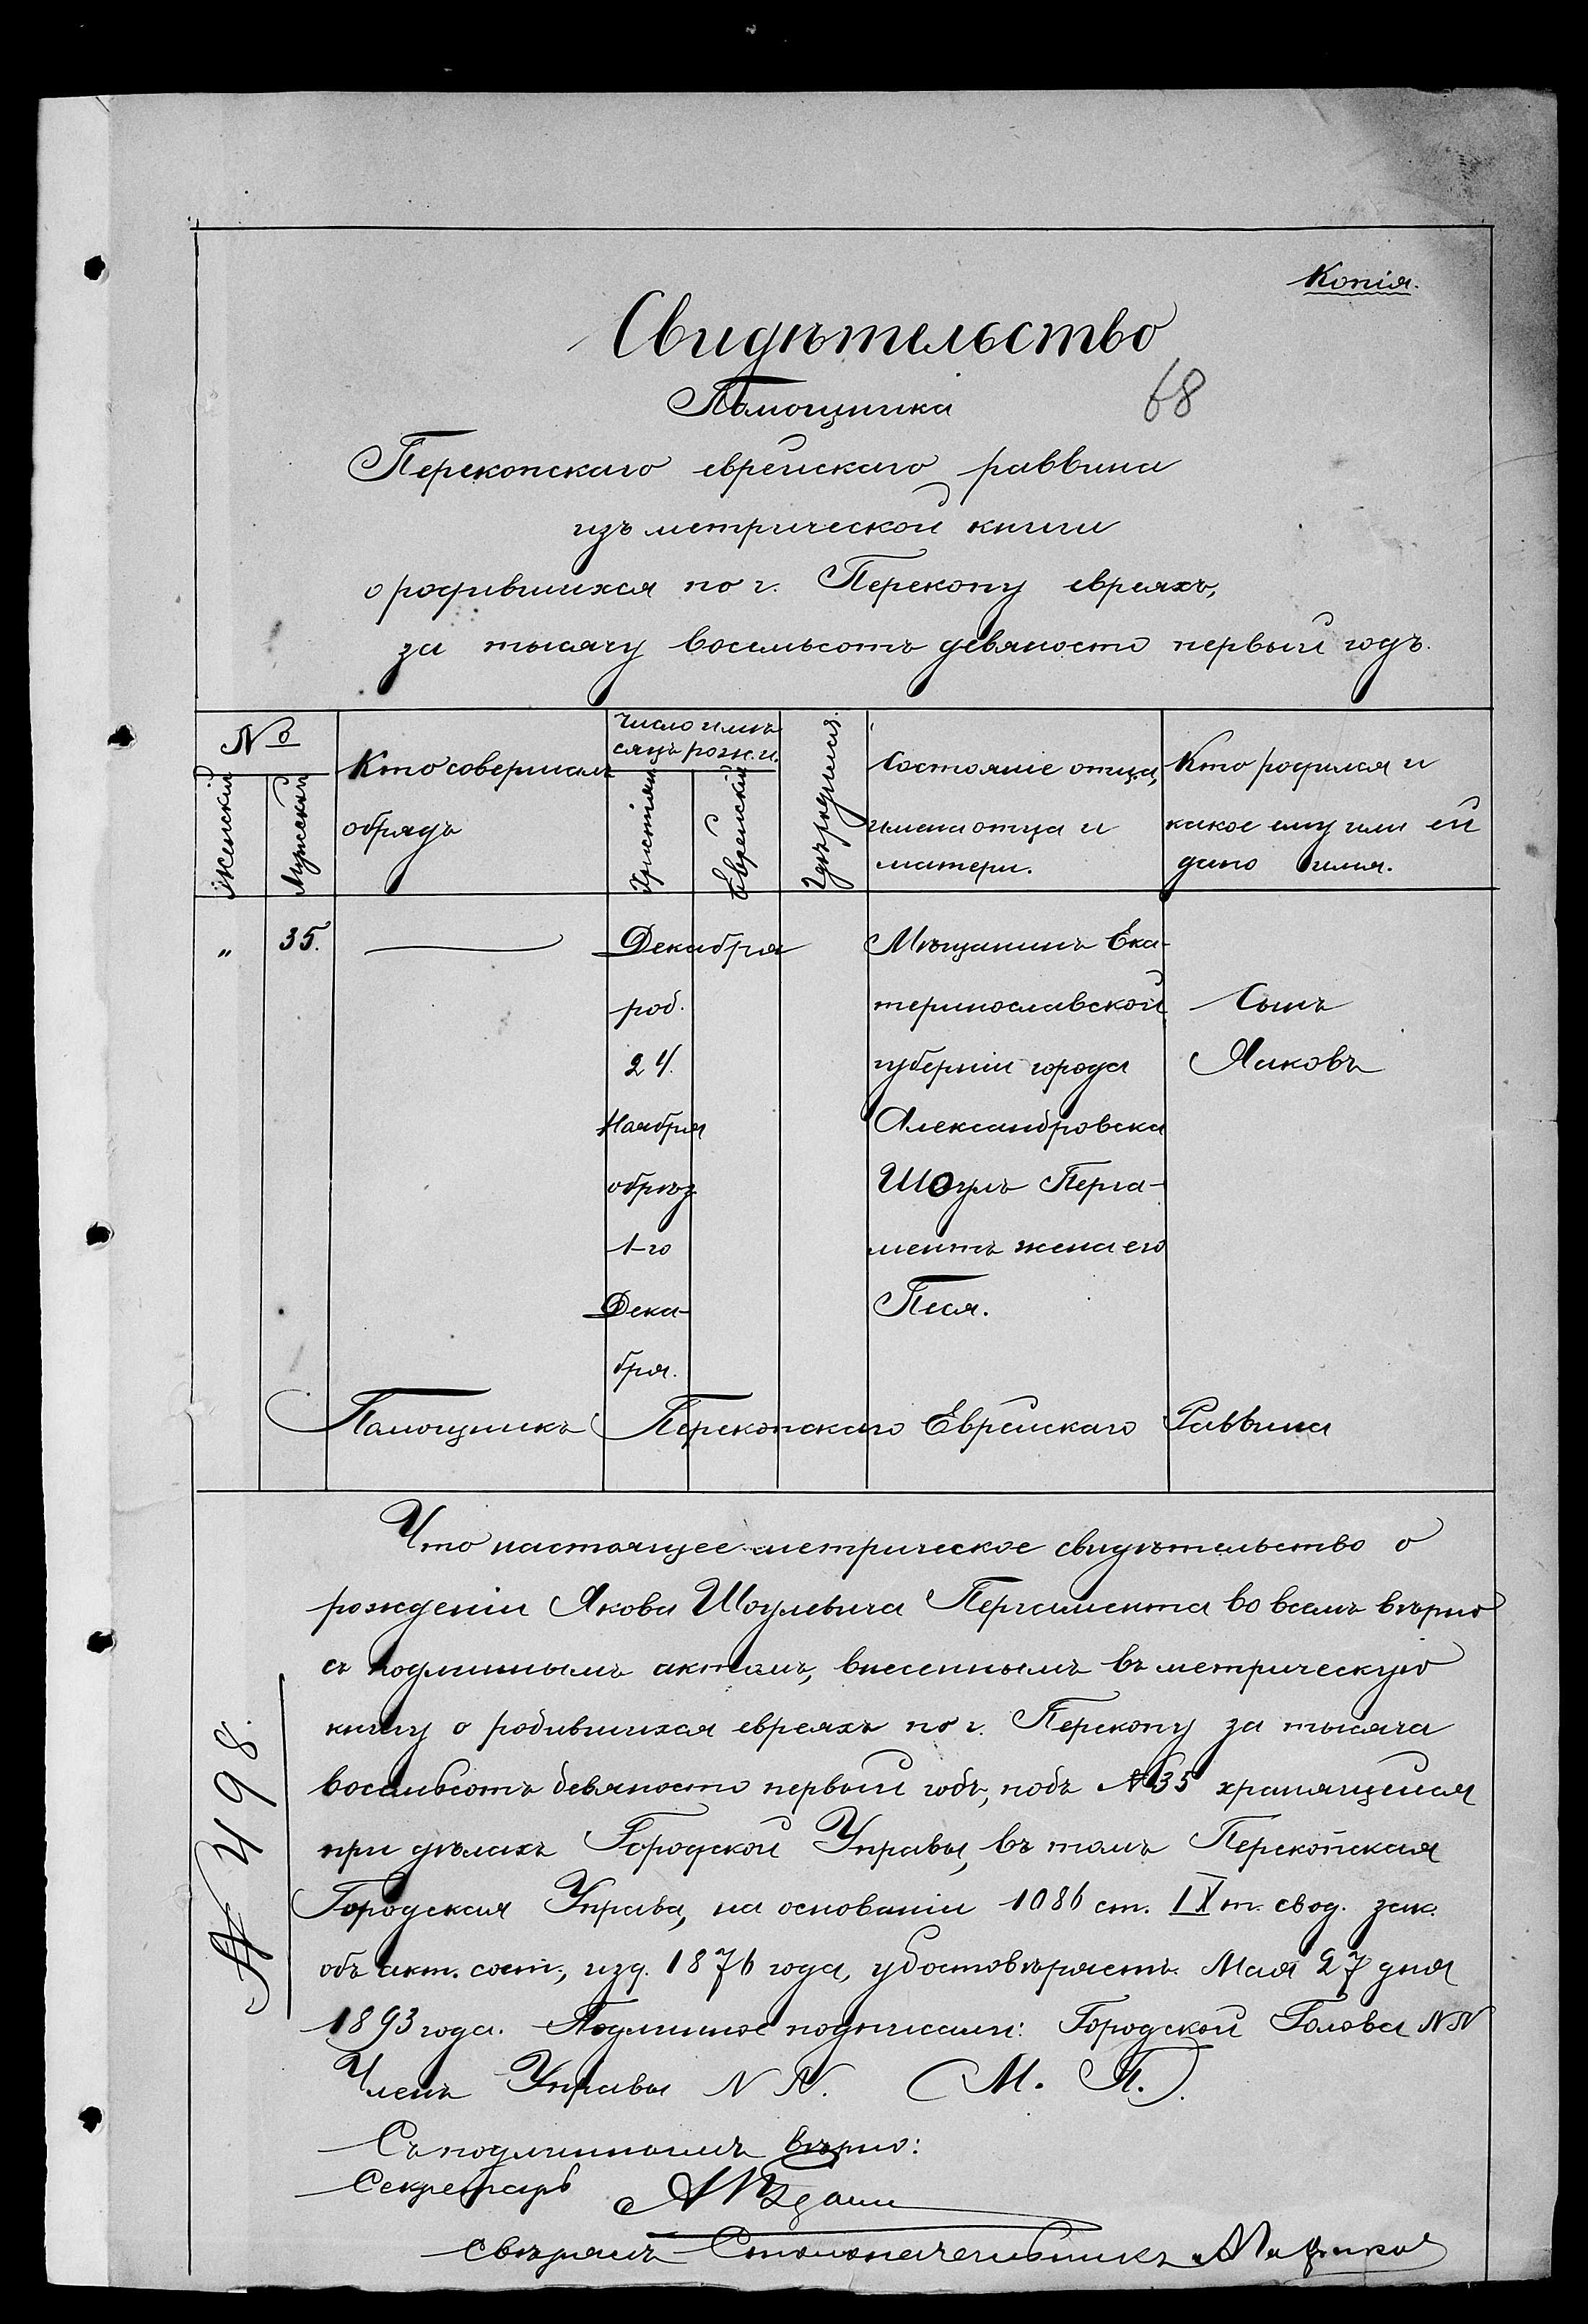 Копія.
Свидѣтельство
68
Помощника
Перекопскаго еврейскаго раввина
изъ метрической книги
о родившихся по г. Перекопу евреяхъ,
за тысячу восемьсотъ девяносто первый годъ.
№
Женскій
Мужескій
Кто совершалъ
обрядъ
Число и мѣ-
сяцъ рожд. и.
Христіан
Еврейскій
Гдѣ родился
Состояніе отца,
имена отца и
матери.
Кто родился и
какое ему или ей
дано имя.
„
35.
Декабря
род.
24.
Ноября
обрѣз.
1-го
Дека-
бря.
Мѣщанинъ Ека-
теринославской
губерніи города
Александровска
Шоулъ Перга-
ментъ жена его
Песя.
Сынъ
Яковъ
Помощникъ Перекопскаго Еврейскаго Раввина
Что настоящее метрическое свидѣтельство о
рожденіи Якова Шоулевича Пергамента во всемъ вѣрно
съ подлиннымъ актомъ, внесеннымъ въ метрическую
книгу о родившихся евреяхъ по г. Перекопу за тысяча
восемьсотъ девяносто первый годъ, подъ №35 хранящейся
при дѣлахъ Городской Управы, въ томъ Перекопская
Городская Управа, на основаніи 1086 ст. IX т. свод. зак.
объ акт. сост., изд. 1876 года, удостовѣряетъ. Мая 27 дня
1893 года. Подлинное подписали: Городской Голова NN
Членъ Управы N N. (М. П.).
№ 498.
Съ подлиннымъ вѣрно:
Секретарь
Свѣрялъ Столоначальникъ